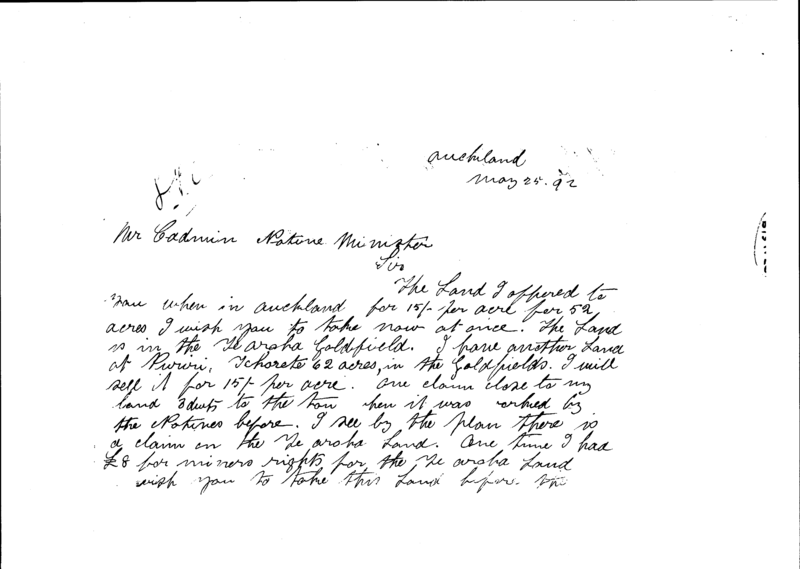 Auckland
May 25. 92
Mr Cadmin Native Minister
Sir
The Land I offered to
You when in Auckland for 15/- per acre for 52
acres I wish you to take now at once. The Land
is in the Te Aroha Goldfield. I have another Land
at Puriri, Ichorete 62 acres, in the Goldfields. I will
sell it for 15/- per acre. One claim close to my
land 3dwts to the ton when it was worked by
the Natives before. I see by the plan there is
a claim on the Te Aroha Land. One time I had
£8 for miners rights for the Te Aroha Land
wish you to take this Land before the